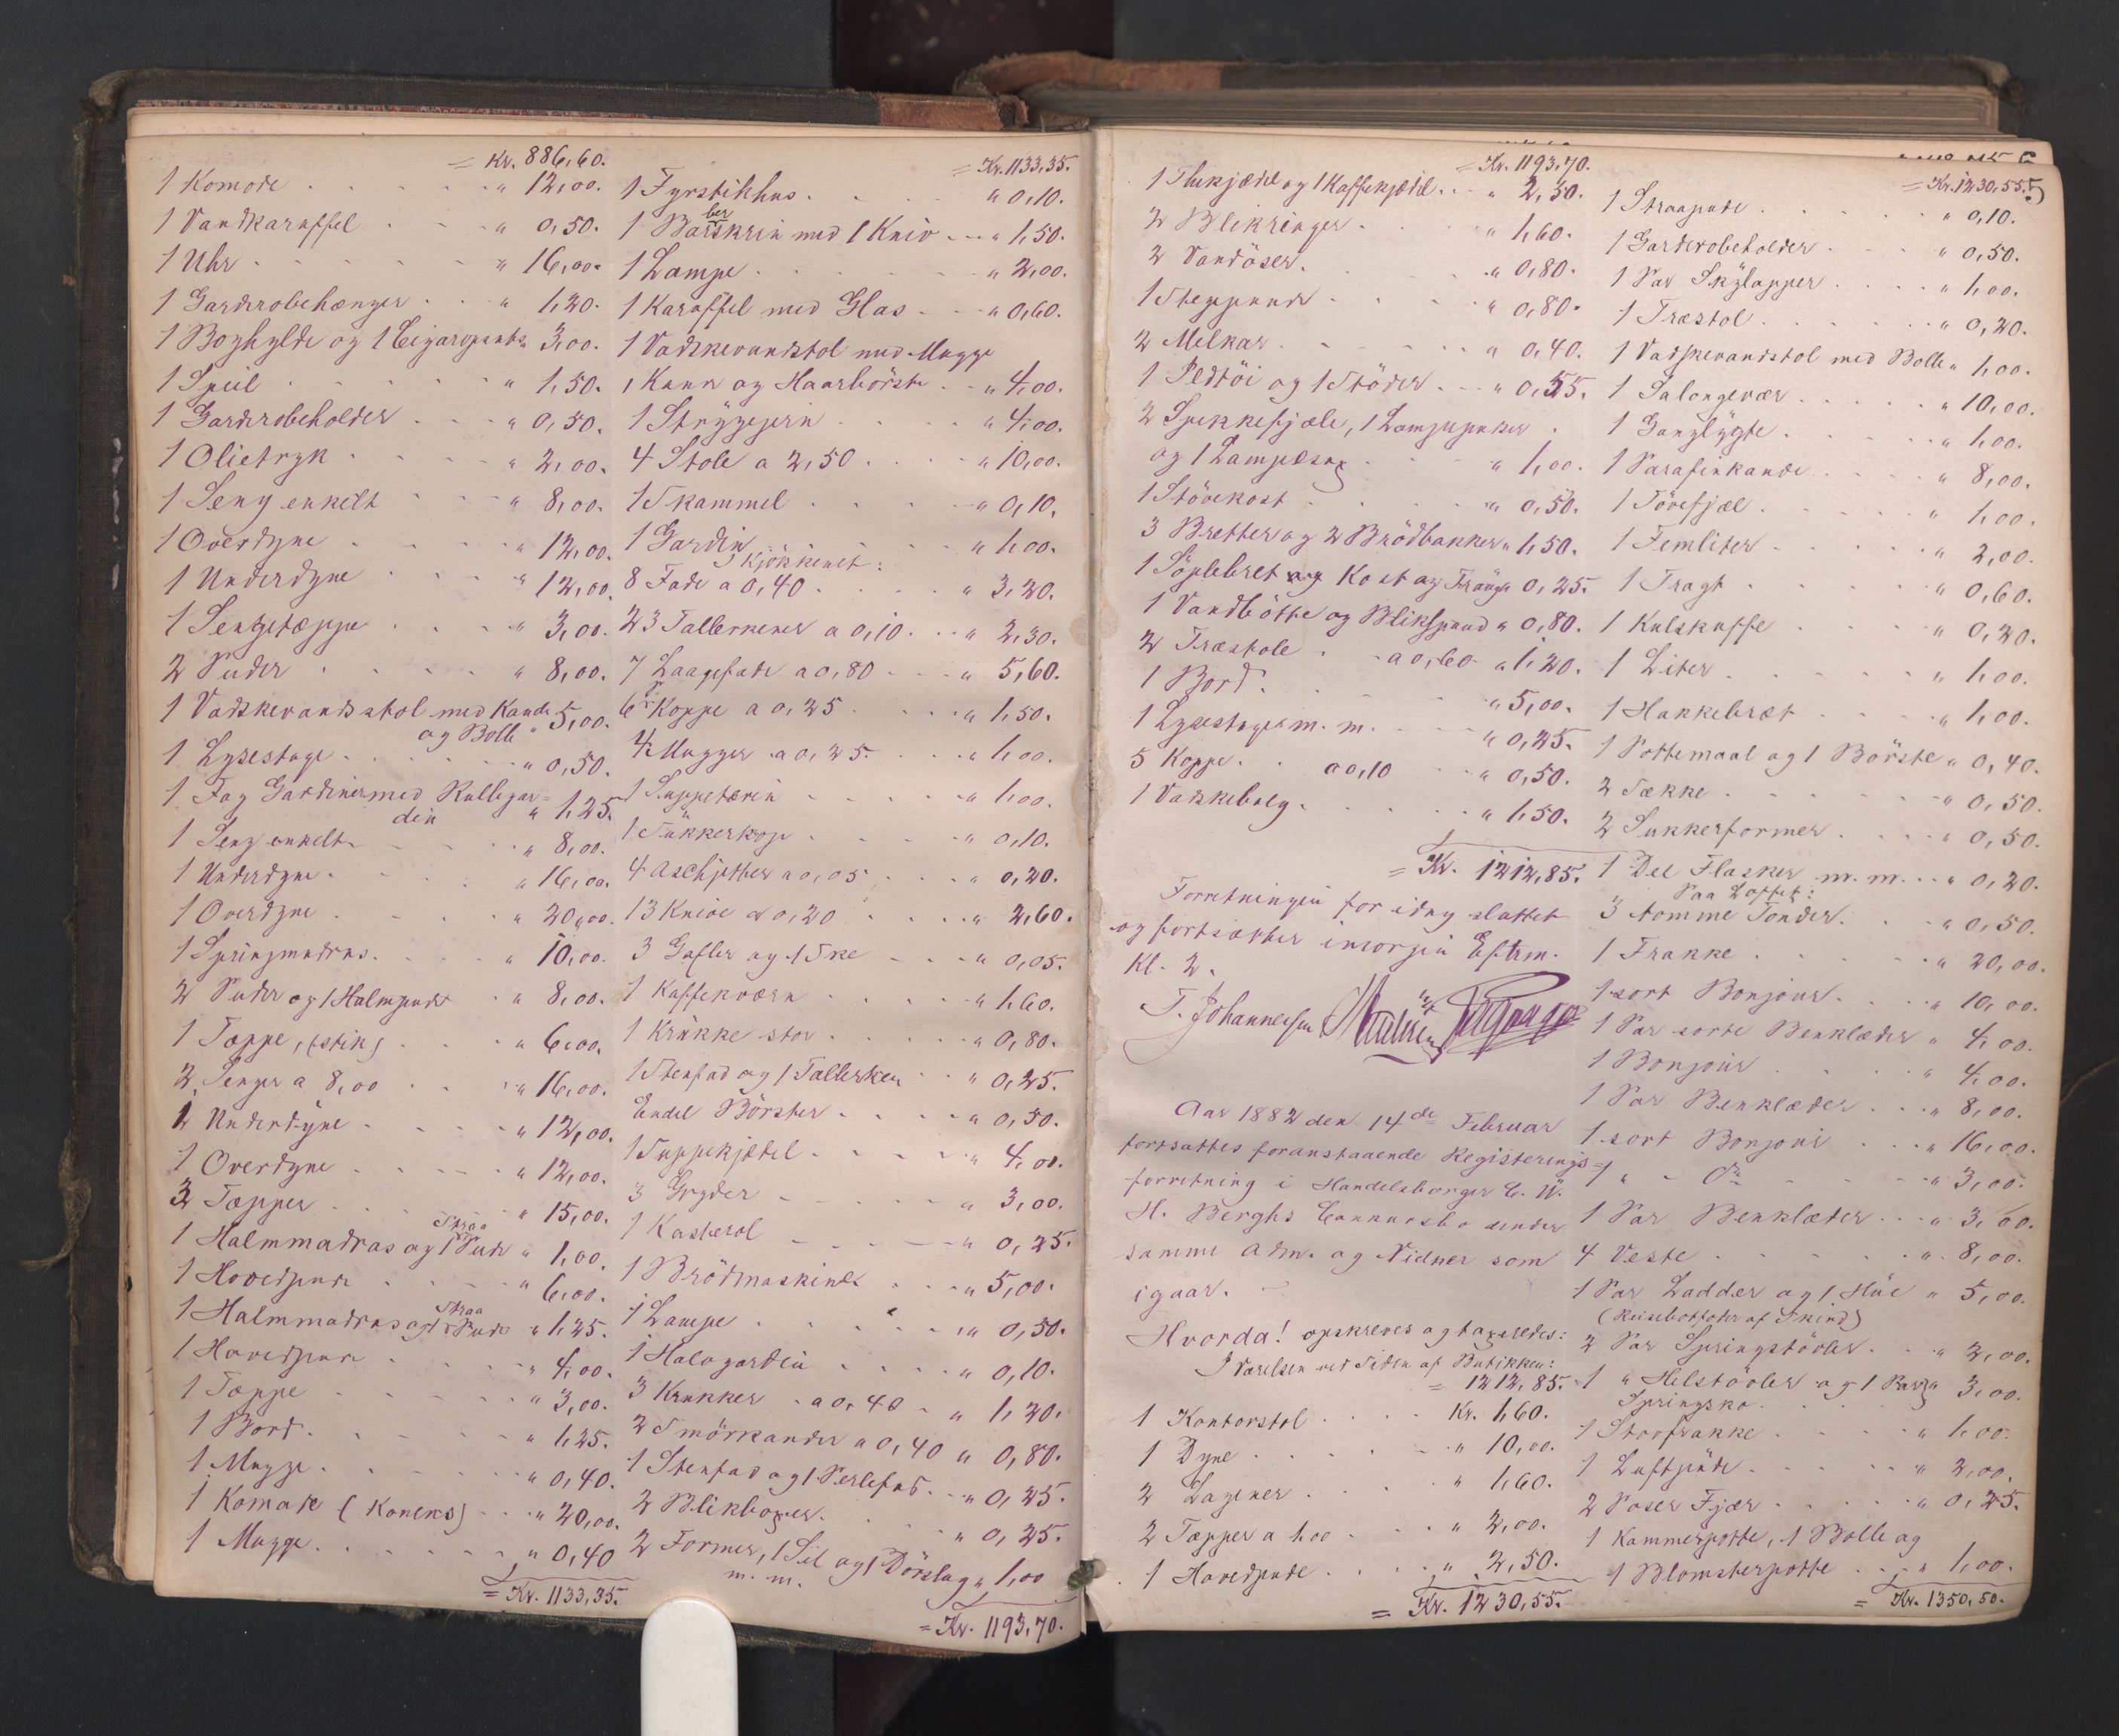 = Kr. 886,60.
1 Komode . . . . . " 12,00.
1 Vandkaraffel . . . " 0,50.
1 Uhr . . . . . " 16,00.
1 Garderobehænger . . " 1,20.
1 Boghylde og 1 Cigargjemke " 3,00.
1 Speil . . . . . " 1,50.
1 Garderobeholder . . . " 0,50.
1 Olietryk . . . . " 2,00.
1 Seng enkelt . . . " 8,00.
1 Overdyne . . . . " 12,00.
1 Underdyne . . . . " 12,00.
1 Sengetæppe . . . . " 3,00.
2 Puder . . . . . " 8,00.
1 Vadskevandsstol med Kande
og Bolle " 5,00.
1 Lysestage . . . . . " 0,50.
1 Fag Gardiner med Rullegar=
din " 1,25.
1 Seng enkelt . . . . " 8,00.
1 Underdyne . . . . " 16,00.
1 Overdyne . . . . " 20,00.
1 Springmadras. . . . " 10,00.
2 Puder og 1 Halmpude . " 8,00.
1 Tæppe, (stin) . . . " 6,00.
2 Senger a 8,00 . . . " 16,00.
1 Underdyne . . . . " 12,00.
1 Overdyne . . . . " 12,00.
3 Tæpper . . . . . " 15,00.
1 Halmmadras og 1 Straa Pude " 1,00.
1 Hovedpude . . . . " 6,00.
1 Halmmadras og 1 Straa Pude " 1,25.
1 Hovedpude . . . . " 4,00.
1 Tæppe . . . . . " 3,00.
1 Bord . . . . . " 1,25.
1 Mugge. . . . . . " 0,40.
1 Komode (Konens) . . " 20,00.
1 Mugge. . . . . . " 0,40
= Kr. 1133,35.
= Kr. 1133,35.
1 Fyrstikhus . . . . " 0,10.
1 Barberskrin med 1 Kniv . . " 1,50.
1 Lampe . . . . . . " 2,00.
1 Karaffel med Glas . . " 0,60.
1 Vadskevandstol med Mugge
, Kam og Haarbörste . . " 4,00.
1 Strygejern . . . . " 4,00.
4 Stole a 2,50 . . . . " 10,00.
1 Skammel . . . . . " 0,10.
1 Gardin . . . . . " 1,00.
I Kjökkenet:
8 Fade a 0,40 . . . . " 3,20.
23 Tallerkener a 0,10 . . " 2,30.
7 Laagefade a 0,80 . . " 5,60.
6 Koppe a 0,25 . . . . " 1,50.
4 Mugger a 0,25. . . . " 1,00.
1 Suppeterin . . . . " 1,00.
1 Sukkerkop . . . . . " 0,10.
4 Aschjetter a 0,05 . . " 0,20.
13 Knive a 0,20 . . . . " 2,60.
3 Gafler og 1 Ske . . . " 0,05.
1 Kaffekværn . . . . " 1,60.
1 Krukke stor . . . . " 0,80.
1 Stenfad og 1 Tallerken . " 0,25.
Endel Börster . . . . " 0,50.
1 Suppekjedel . . . . " 4,00.
3 Gryder . . . . . " 3,00.
1 Kasterol . . . . . " 0,25.
1 Brödmaskine . . . . " 5,00.
1 Lampe . . . . . . " 0,50.
1 Halvgardin . . . . " 0,10.
3 Krukker a 0,40 . . " 1,20.
2 Smörkander a 0,40 " 0,80.
1 Stenfad og 1 Perlefad . . " 0,25.
2 Blikboxer. . . . . " 0,25.
2 Former, 1 Sil og 1 Dörslag " 1,00
m. m.
= Kr. 1193,70.
= Kr. 1193,70.
1 Thekjædel og 1 Kaffekjædel . . " 2,50.
2 Blikringer . . . . " 1,60.
2 Vandöser. . . . . " 0,80.
1 Stegepande . . . . " 0,80.
2 Melkar . . . . . " 0,40.
1 Pedtöi og 1 Stöder . . " 0,55.
2 Spekkefjæle, 1 Lampepudser .
og 1 Lampesax . . . " 1,00.
1 Stövekost . . . . . " 0,50.
3 Bretter og 2 Brödbakker " 1,50.
1 Söplebret og Kost og Trauge 0,25.
1 Vandbötte og Blikspand " 0,80.
2 Træstole . . a 0,60 " 1,20.
1 Bord. . . . . . " 5,00.
1 Lysestage m. m. . . . " 0,25.
5 Koppe. . a 0,10 . . " 0,50.
1 Vadskebalg. . . . . " 1,50.
= Kr. 1212,85.
Forretningen for idag sluttet
og fortsætter imorgen Efterm.
Kl. 2.
T. Johannesen
Aar 1882 den 14de Februar
fortsattes foranstaaende Registerings=
forretning i Handelsborger C. W.
H. Berghs Concursbo under
samme Adm. og Vidner som
igaar.
Hvorda! opskreves og taxeredes:
I Værelsen ved Siden af Butikken:
= 1212,85.
1 Kontorstol . . . . Kr. 1,60.
1 Dyne . . . . . " 10,00.
2 Lagener . . . . . " 1,60.
2 Tæpper a 1,00 . . . " 2,00.
1 Hovedpude . . . . " 2,50.
= Kr. 1230,55.
= Kr. 1230,55.
1 Straapude . . . . . " 0,10.
1 Garderobeholder . . . " 0,50.
1 Par Skylapper . . . . " 1,00.
1 Træstol . . . . . " 0,20.
1 Vadskevandstol med Bolle " 1,00.
1 Salongevær . . . . " 10,00.
1 Ganglygte . . . . . " 1,00.
1 Parafinkande . . . . " 8,00.
1 Tövefjæl . . . . . " 1,00.
1 Femliter . . . . . " 2,00.
1 Tragt . . . . . " 0,60.
1 Kulskuffe . . . . . " 0,20.
1 Liter . . . . . . " 1,00.
1 Hakkebræt . . . . " 1,00.
1 Pottemaal og 1 Börste " 0,40.
2 Sække . . . . . " 0,50.
2 Sukkerformer . . . . " 0,50.
1 Del Flasker m. m. . . " 0,20.
Paa Loftet:
3 tomme Tönder. . . . " 0,50.
1 Frakke . . . . . " 20,00.
1 sort Bonjour . . . . " 10,00.
1 Par sorte Benklæder " 4,00.
1 Bonjour . . . . " 4,00.
1 Par Benklæder . . . " 8,00.
1 sort Bonjour . . . " 16,00.
1 " - Do - - - " 3,00.
1 Par Benklæder . . . " 3,00.
4 Veste . . . . . " 8,00.
1 Par Ladder og 1 Hue " 5,00.
(Reisebotforter af Skind)
2 Par Springstövler . . " 2,00.
1 " Helstövler og 1 Par " 3,00.
Springsko . . .
1 Storfrakke . . . . " 1,00.
1 Luftpude . . . . . " 2,00.
2 Poser Fjær . . . . " 0,25.
1 Kammerpotte, 1 Bolle og
1 Blomsterpotte . . . " 1,00.
= Kr. 1350,50.